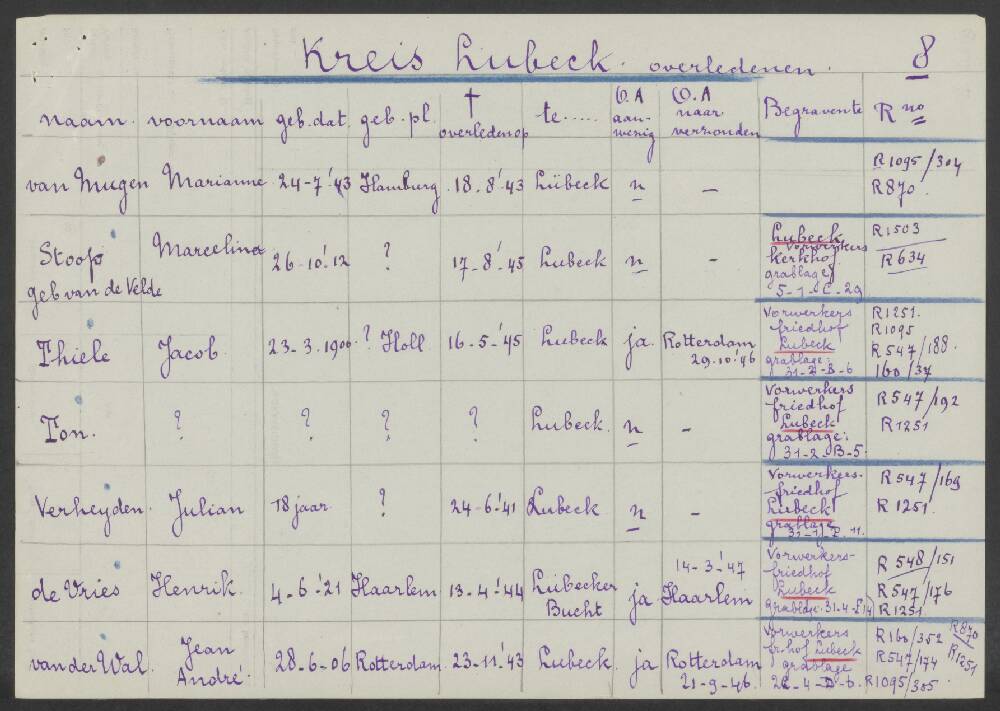 Kreis Lubeck. overledenen. 8
naam. voornaam geb.dat. geb.pl. † overleden op te..... O.A aanwezig O.A naar verzonden Begravente R no
van Mugen Marianne 24-7-'43 Hamburg 18.8'.43 Lübeck n – R1095/304
R870.
Stoop Marcelina 26-10'.12 ? 17-8'-45 Lubeck n – Lubeck R1503
geb van de Velde Vorwerkers
kerkhof R634
grablage
5-1-C-29
Thiele Jacob. 23-3.1906 ? Holl. 16-5-'45 Lubeck ja. Rotterdam Vorwerkers R1251.
29.10.'46 friedhof R1095
Lubeck R547/188.
grablage:
31-2-B-6 160/37
Ton. ? ? ? ? Lubeck. n – Vorwerkers R547/192
friedhof
Lubeck R1251
grablage:
31-2-B-5.
Verheyden. Julian 18 jaar ? 24-6-'41 Lubeck n – Vorwerkers- R547/169
friedhof
Lubeck R1251.
grablage
de Vries Henrik. 4-6-'21 Haarlem 13-4-'44 Lübecker Bucht ja 14-3-'47 Haarlem Vorwerkers- R548/151
friedhof
Lubeck R547/176
grablage. 31-4- R1251
van der Wal. Jean André. 28-6-06 Rotterdam. 23-11.'43 Lubeck. ja Rotterdam 21-9-46. Vorwerkers R160/352 R870
fr.hof Lubeck R547/174 R1251
grablage
R1095/305.